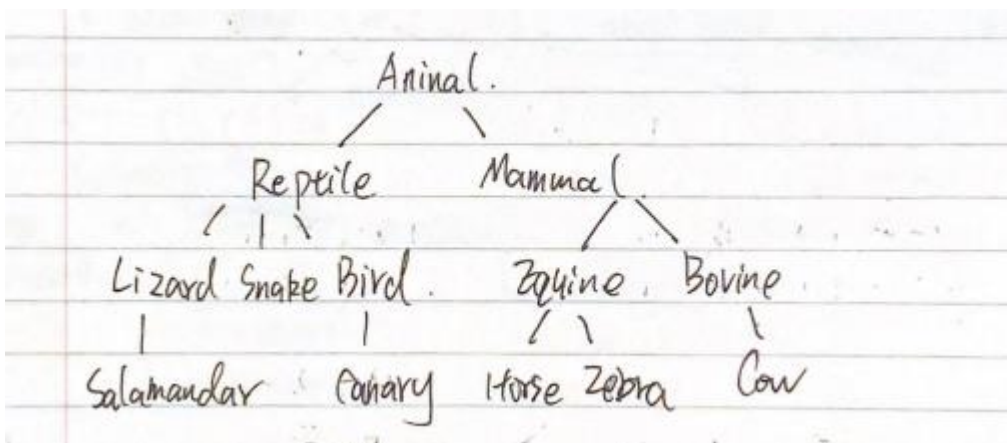 Aninal.
Reptile Mammal.
Lizard Snake Bird. Equine. Bovine
Salamandar Canary Horse Zebra Cow